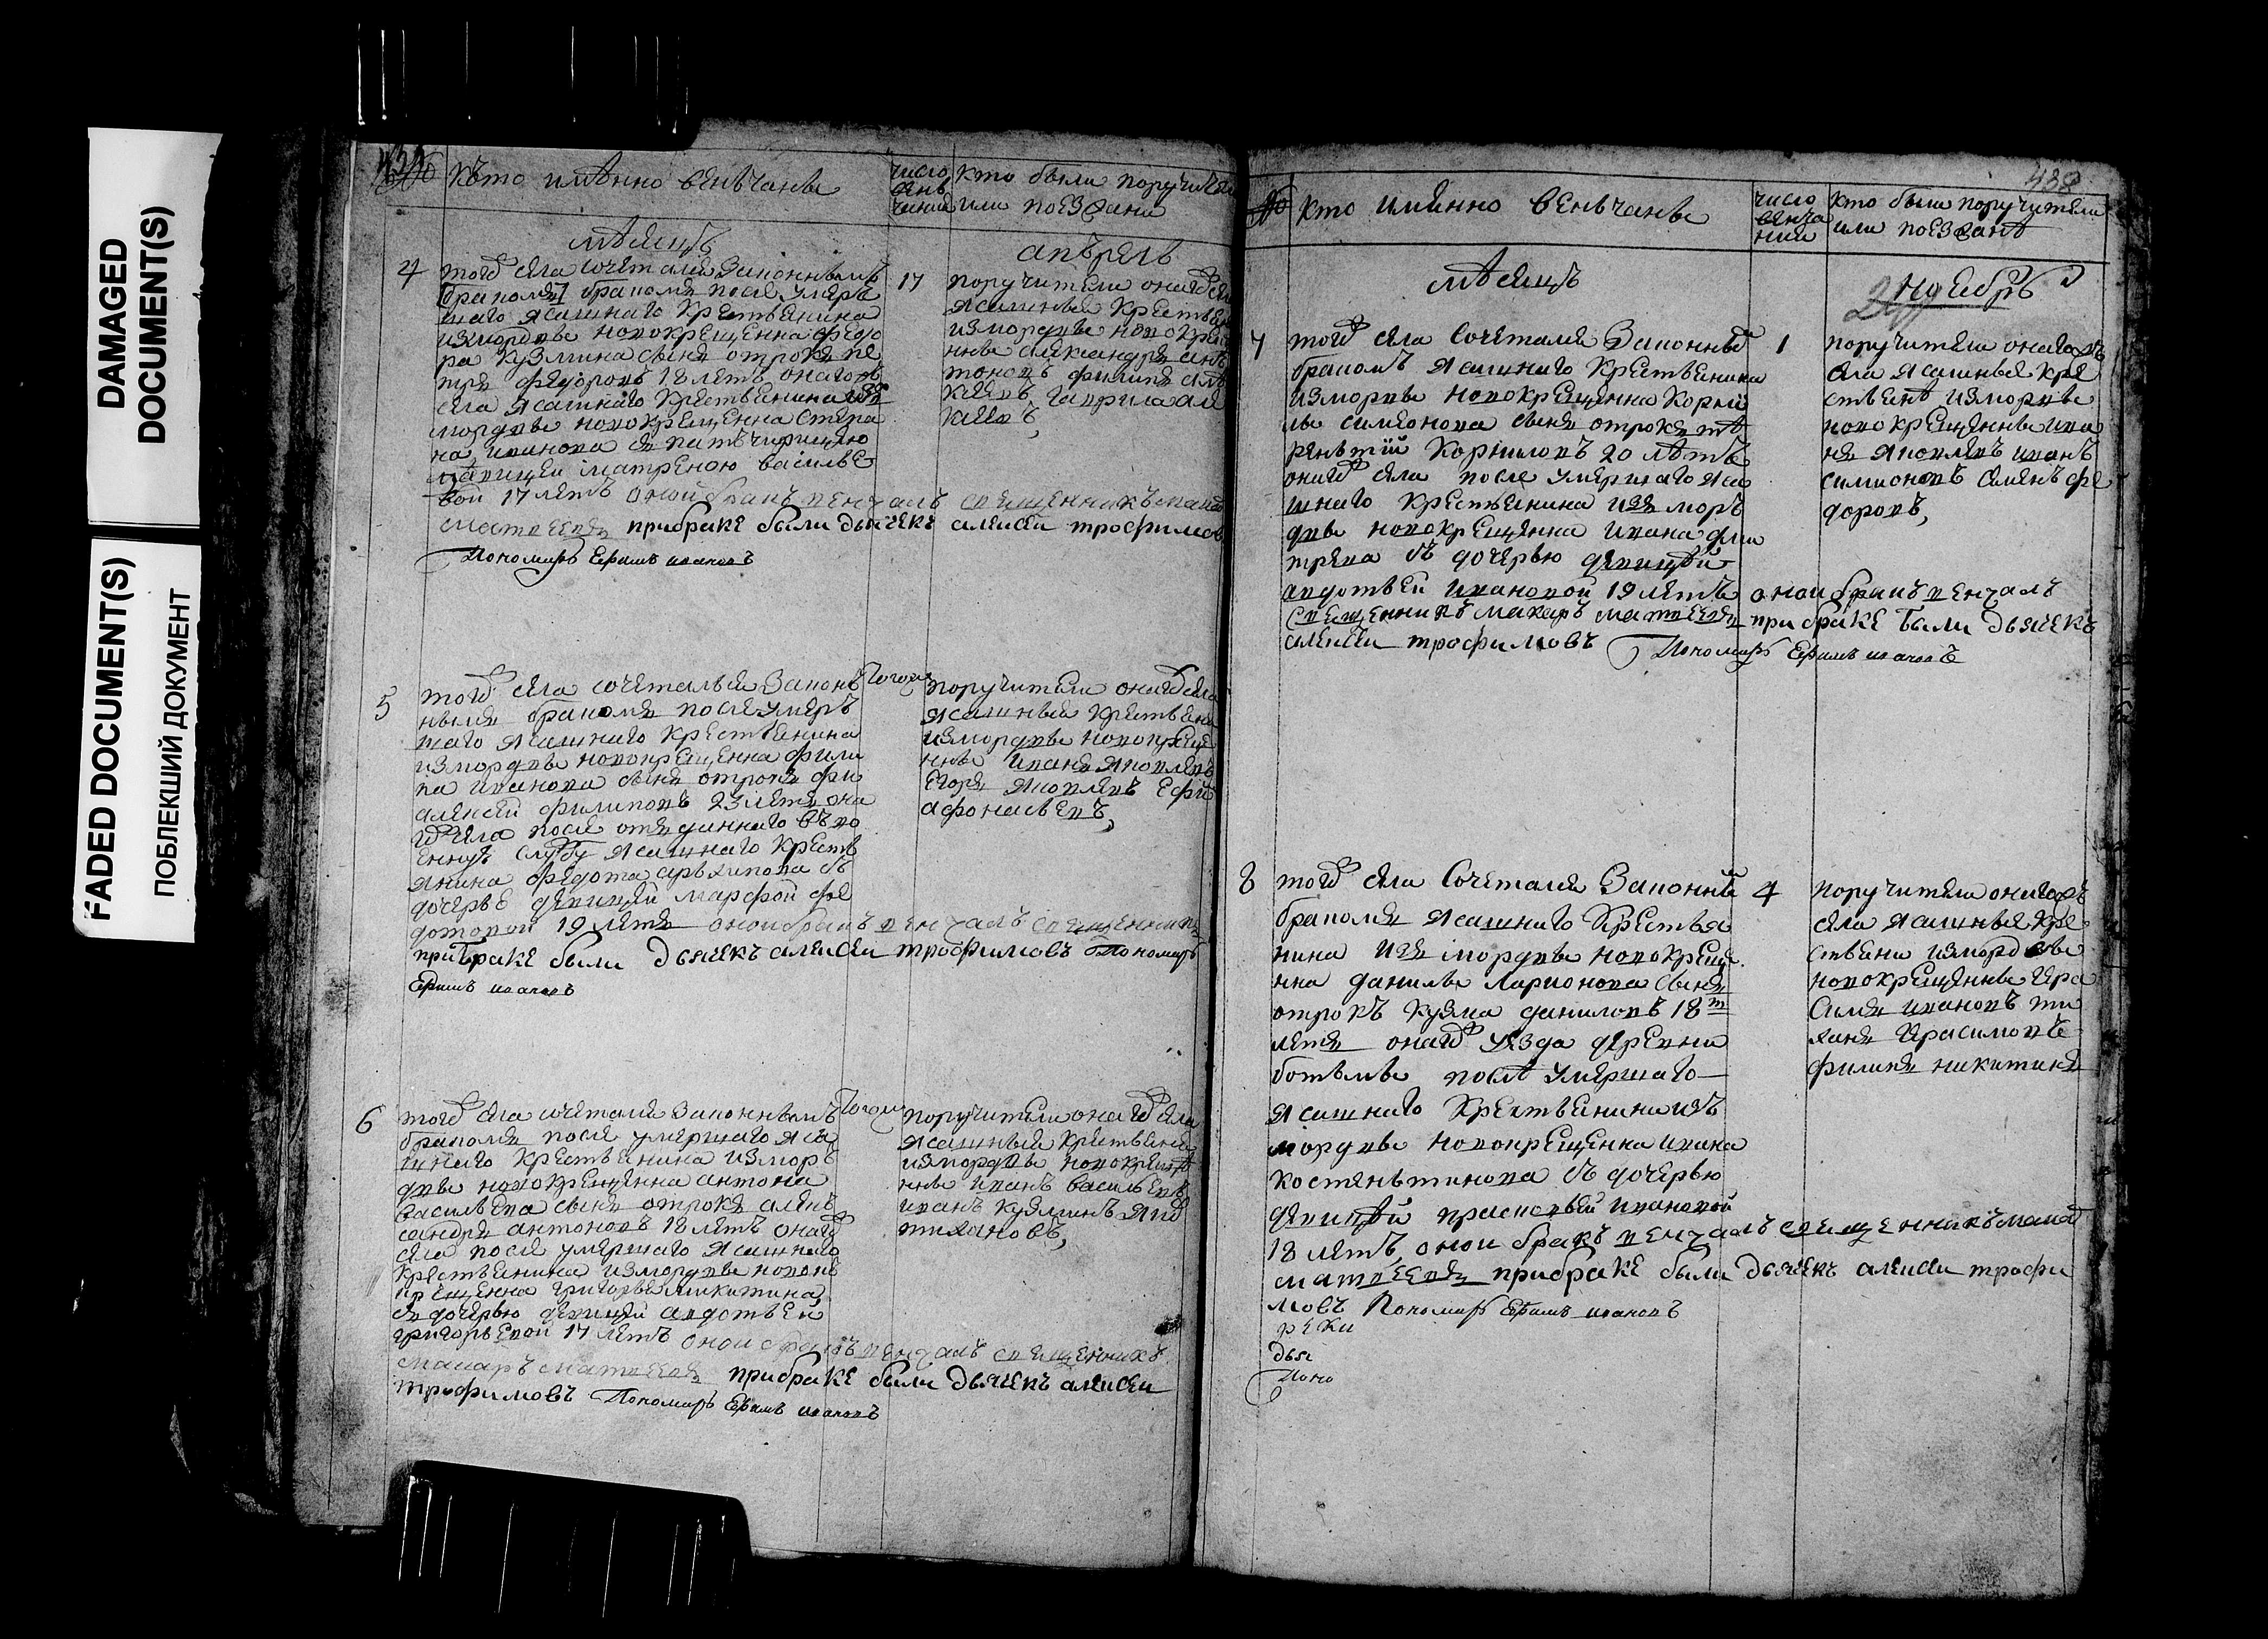 DAMAGED
DOCUMENT(S)
FADED DOCUMENT(S)
ПОБЛЕКШИЙ ДОКУМЕНТ
№ кто имянно венъчаны
число венъчания
кто были поручители или поезжани
мѣсяцъ
апърель
4
тогѡ села сочетался законнымъ
бракомъ после умеръ
шаго ясашнаго крестьянина
измордвы новокрещенна федо
ра кузмина сынъ отрокъ пе
тръ федоровъ 18 летъ онагожъ
села ясашнаго крестьянина изъ
мордвы новокрещенна степа
на иванова съ
девицеи матреною василье
вои 17 летъ оной бракъ венчалъ священникъ макаръ
матвеевъ при браке были дьячекъ алексеи трофимовъ
Пономарь Ефимъ ивановъ
17
поручители онагѡ села
ясашныя крестьяне
измордвы новокреще
нны александръ
филипъ
гаврила
5
тогѡ села сочетался законъ
нымъ бракомъ после умеръ
шаго ясашнаго крестьянина
измордвы новокрещенна фили
па иванова сынъ отрокъ
алексеи филиповъ 23 летъ она
гѡ села после отъданнаго въ во
енную службу ясашнаго кресть
янина федота архипова съ
дочерью девицей марфой фе
дотовой 19 летъ оной бракъ венчалъ священникъ
при браке были дьячекъ алексеи трофимовъ Пономарь
Ефимъ ивановъ
Тогож
поручители онагѡ села
ясашныя крестьяне
измордвы новокреще
нны иванъ яковлевъ
егоръ яковлевъ ефи
афонасьевъ
6
тогѡ села сочетался законнымъ
бракомъ после умершаго яса
шнаго крестьянина изморъ
двы новокрещенна антона
васильева сынъ отрокъ алекъ
сандръ антоновъ 18 летъ онагѡ
села после умершаго ясашнаго
крестьянина измордвы новок
рещенна григорья микитина
съ дочерью девицей авдотьеи
григорьевой 17 летъ оной бракъ венчалъ священникъ
макаръ матвеевъ при браке были дьячекъ алексеи
трофимовъ Пономарь Ефимъ ивановъ
Тогож
поручители онагѡ села
ясашныя крестьяне
измордвы новокреще
нны иванъ васильевъ
иванъ кузминъ
тихановъ
438
№ кто имянно венъчаны
число венча ния
кто были поручители или поезжанѣ
мѣсяцъ
ноебрь
7
тогѡ села сочетался законнымъ
бракомъ ясашнаго крестьянина
измордвы новокрещенна корни
лы симионова сынъ отрокъ те
рентїй корниловъ 20 лѣтъ
онагѡ села после умершаго яса
шнаго крестьянина изъ моръ
двы новокрещенна ивана дми
трева съ дочерью девицѣй
авдотьей ивановой 19 летъ оной бракъ венчалъ
священникъ макаръ матвеевъ при браке были дьячекъ
алексеи трофимовъ Пономарь Ефимъ ивановъ
1
поручители онагожъ
села ясашныя кре
стьянѣ измордвы
новокрещенны ива
нъ яковлевъ иванъ
симионовъ семенъ фе
доровъ
8
тогѡ села сочетался законны
бракомъ ясашнаго крестья
нина изъ мордвы новокреще
нна данилы ларионова сынъ
отрокъ кузма даниловъ 18
летъ онагѡ уезда деревни
ботьмы послѣ умершаго
ясашнаго крестьянина изъ
мордвы новокрещенна ивана
костенътинова съ дочерью
девицѣй прасковьей ивановой
18 летъ оной бракъ венчалъ священникъ макаръ
матвеевъ при браке были дьячекъ алексеи трофи
мовъ Пономарь Ефимъ ивановъ
дья
Поно
4
поручители онагожъ
села ясашныя кре
стьяни измордвы
новокрещенны гера
симъ ивановъ ти
ханъ герасимовъ
филипъ никитинъ